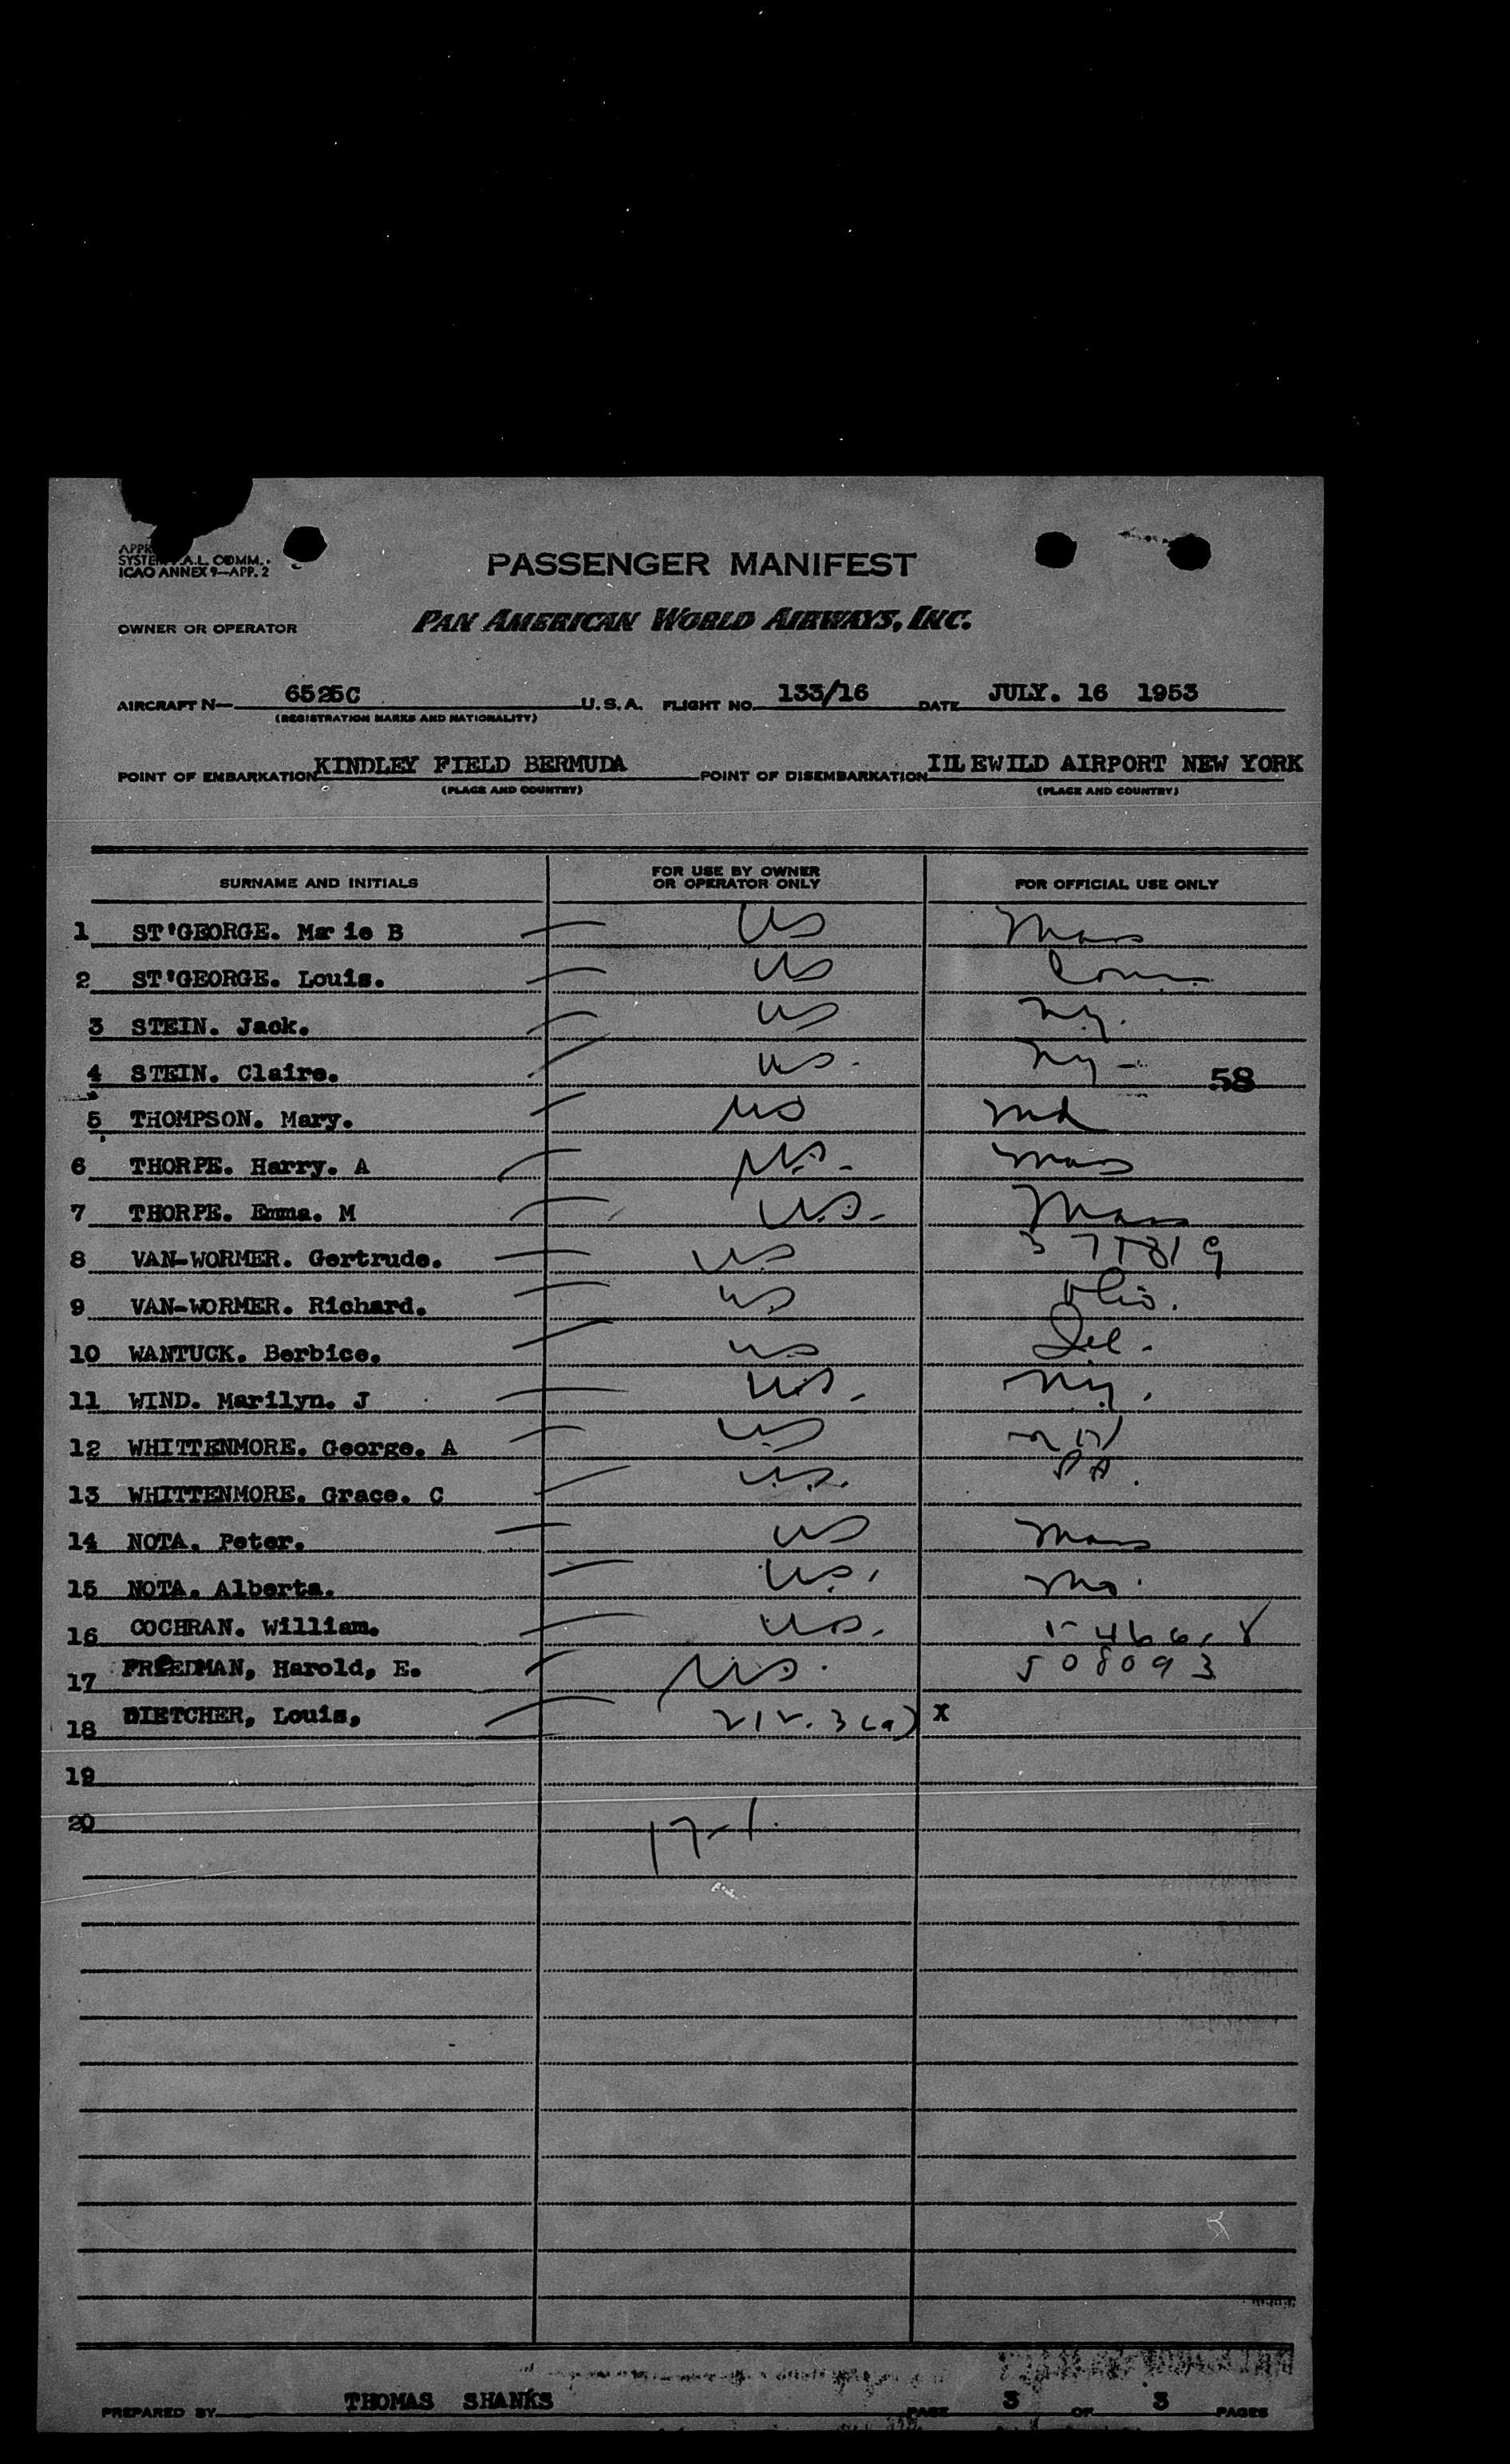 SYSTEM A.L. COMM.
ICAO ANNEX 9—APP. 2
PASSENGER MANIFEST
OWNER OR OPERATOR PAN AMERICAN WORLD AIRWAYS, INC.
AIRCRAFT N— 6525C U.S.A. FLIGHT NO. 133/16 DATE JULY. 16 1953
(REGISTRATION MARKS AND NATIONALITY)
POINT OF EMBARKATION KINDLEY FIELD BERMUDA POINT OF DISEMBARKATION IILEWILD AIRPORT NEW YORK
(PLACE AND COUNTRY) (PLACE AND COUNTRY)
SURNAME AND INITIALS FOR USE BY OWNER OR OPERATOR ONLY FOR OFFICIAL USE ONLY
1 ST'GEORGE. Marie B US Mass
2 ST'GEORGE. Louis. US Conn.
3 STEIN. Jack. US NY.
4 STEIN. Claire. US. NY - 58
5 THOMPSON. Mary. US Md
6 THORPE. Harry. A US. Mass
7 THORPE. Emma. M U.S. Mass
8 VAN-WORMER. Gertrude. US
9 VAN-WORMER. Richard. US Ohio.
10 WANTUCK. Berbice. US
11 WIND. Marilyn. J U.S. NY.
12 WHITTENMORE. George. A US
13 WHITTENMORE. Grace. C U.S. PA.
14 NOTA. Peter. US Mass
15 NOTA. Alberta. U.S.
16 COCHRAN. William. U.S.
17 FRIEDMAN, Harold, E. US. 508093
18 DIETCHER, Louis, 212.3(a) X
19
20
17-1
PREPARED BY THOMAS SHANKS PAGE 3 OF 3 PAGES